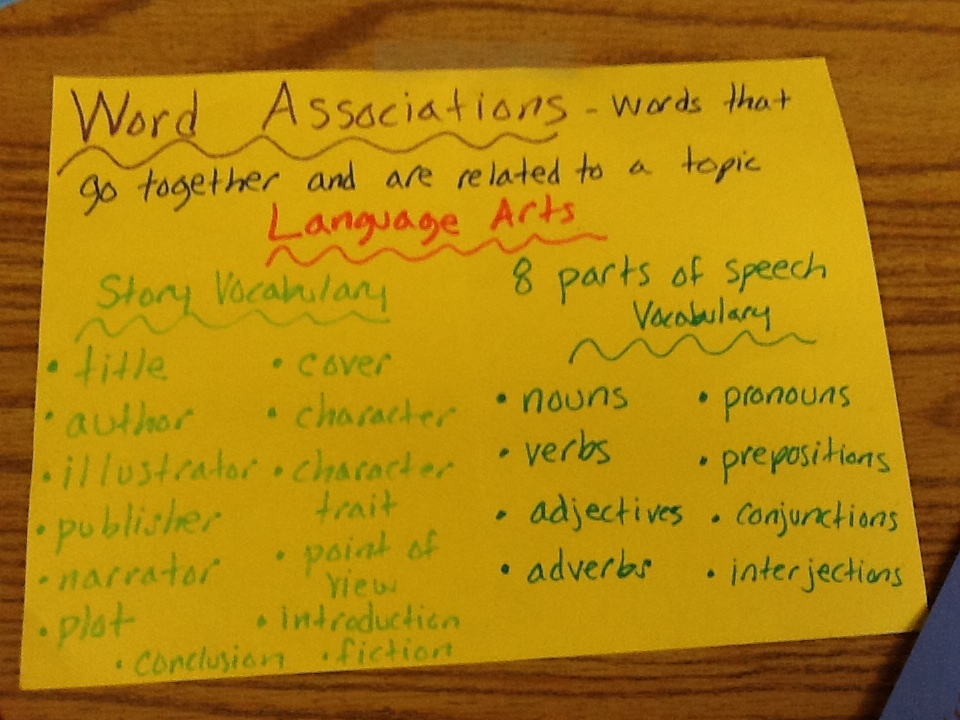 Word Associations - words that
go together and are related to a topic
Language Arts
Story Vocabulary
• title
• author
• illustrator
• publisher
• narrator
• plot
• cover
• character
• character
trait
• point of
view
• introduction
• conclusion
• fiction
8 parts of speech
Vocabulary
• nouns
• verbs
• adjectives
• adverbs
• pronouns
• prepositions
• conjunctions
• interjections